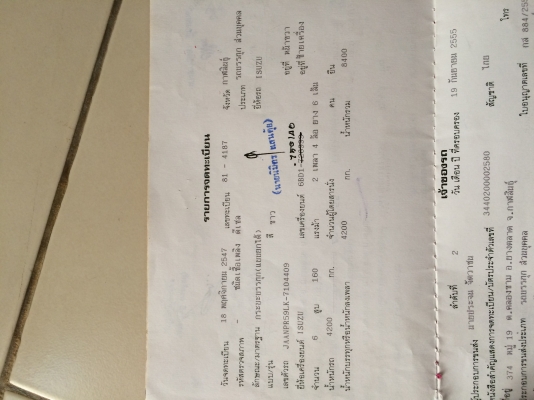 รายการจดทะเบียน
วันจดทะเบียน 18 พฤศจิกายน 2547 เลขทะเบียน 81 - 4187 จังหวัด กาฬสินธุ์
ชนิดเชื้อเพลิง ดีเซล ประเภท รถบรรทุก ส่วนบุคคล
ลักษณะ/มาตรฐาน กระบะบรรทุก(แบบยกได้) ยี่ห้อรถ ISUZU
แบบ/รุ่น สี ขาว
เลขตัวรถ JAANPR59LK-7104409 อยู่ที่ หน้าขวา
ยี่ห้อเครื่องยนต์ ISUZU เลขเครื่องยนต์ 6BD1- อยู่ที่ ซ้ายเครื่อง
จำนวน 6 สูบ 160 แรงม้า 2 เพลา 4 ล้อ ยาง 6 เส้น
น้ำหนักรถ 4200 กก. จำนวนผู้โดยสารนั่ง คน ยืน
น้ำหนักบรรทุกหรือน้ำหนักลงเพลา 4200 กก. น้ำหนักรวม 8400
เจ้าของรถ
ลำดับที่ 2 วัน เดือน ปี ที่ครอบครอง 19 กันยายน 2555
ผู้ประกอบการขนส่ง นายประจบ
หนังสือสำคัญแสดงการจดทะเบียน/บัตรประจำตัวเลขที่ 3440200002580 สัญชาติ ไทย
ที่อยู่ 374 หมู่ 19 ต.คลองขาม อ.ยางตลาด จ.กาฬสินธุ์ โทร
ประกอบการขนส่งประเภท รถบรรทุก ส่วนบุคคล ใบอนุญาตเลขที่ กส 884/255